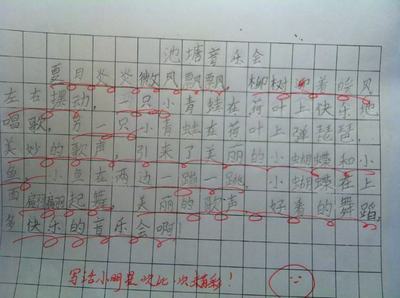 池塘音乐会
夏日炎炎微风飘飘,柳树迎着晚风
左右摆动,一只小青蛙在荷叶上快乐地
唱歌,另一只小青蛙在荷叶上弹琵琶,
美妙的歌声,引来了美丽的小蝴蝶和小
鱼,小鱼在两边一蹦一跳,小蝴蝶在上
面翩翩起舞,美丽的歌声,好看的舞蹈,
多快乐的音乐会啊!
写话小明星一次比一次精彩!